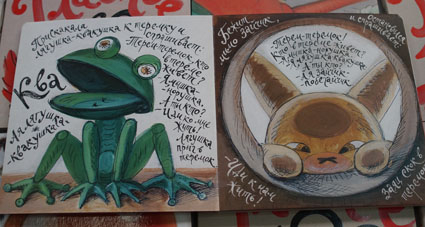 Прискакала
лягушка-квакушка к теремку и
спрашивает:
Терем-теремок, кто
в тереме
живёт?
Я мышка-
норушка,
А ты кто?
Ква
Я лягушка-
квакушка.
Иди ко мне
жить!
Лягушка
прыг в
теремок
Бежит
мимо зайчик.
остановился
и спрашивает:
Терем-теремок!
Кто в тереме живёт?
Я мышка-норушка.
Я лягушка-квакушка.
А ты кто?
А я зайчик-
побегайчик.
Иди к нам
жить!
Заяц скок в
теремок